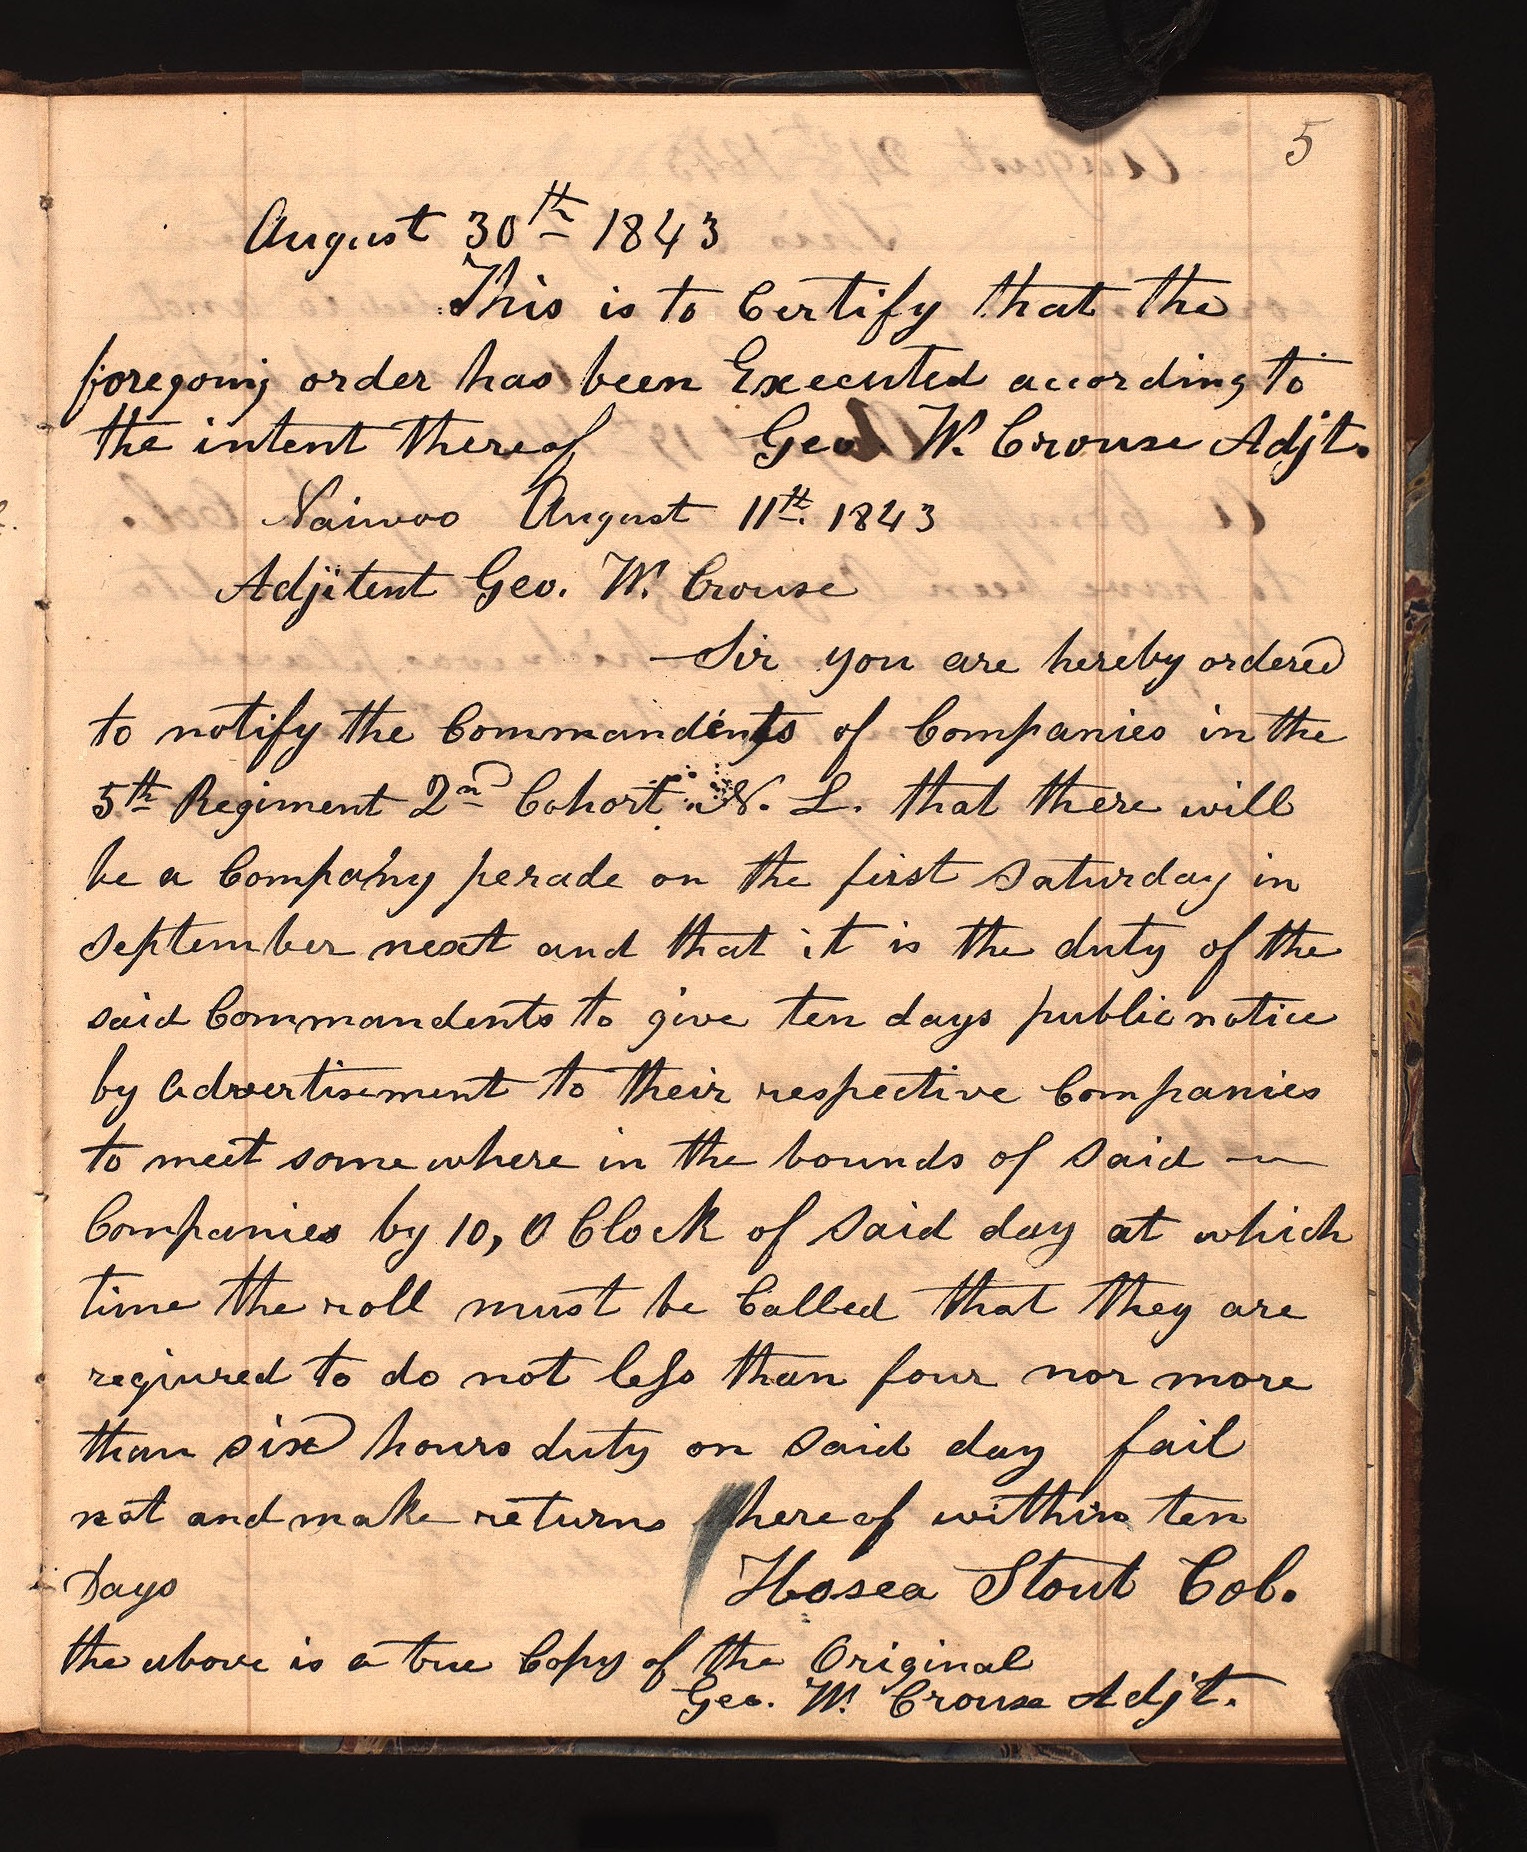 5
August 30th 1843
This is to Certify that the
foregoing order has been Executed according to
the intent thereof Geo W. Crouse Adjt.
Nauvoo August 11th. 1843
Adjitent Geo. W. Crouse
Sir you are hereby ordered
to notify the Commandents of Companies in the
5th Regiment 2nd Cohort N. L. that there will
be a Company perade on the first Saturday in
September next and that it is the duty of the
said Commandents to give ten days public notice
by advertisement to their respective Companies
to meet some where in the bounds of said —
Companies by 10, O Clock of said day at which
time the roll must be Called that they are
reqiured to do not less than four nor more
than six hours duty on said day fail
not and make returns hereof within ten
Days Hosea Stout Col.
the above is a true Copy of the Original
Geo. W. Crouse Adjt.